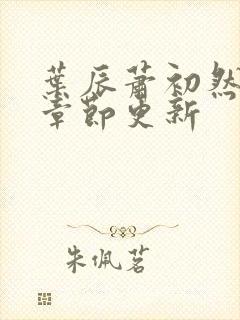 葉辰蕭初然
章節更新
朱佩茗